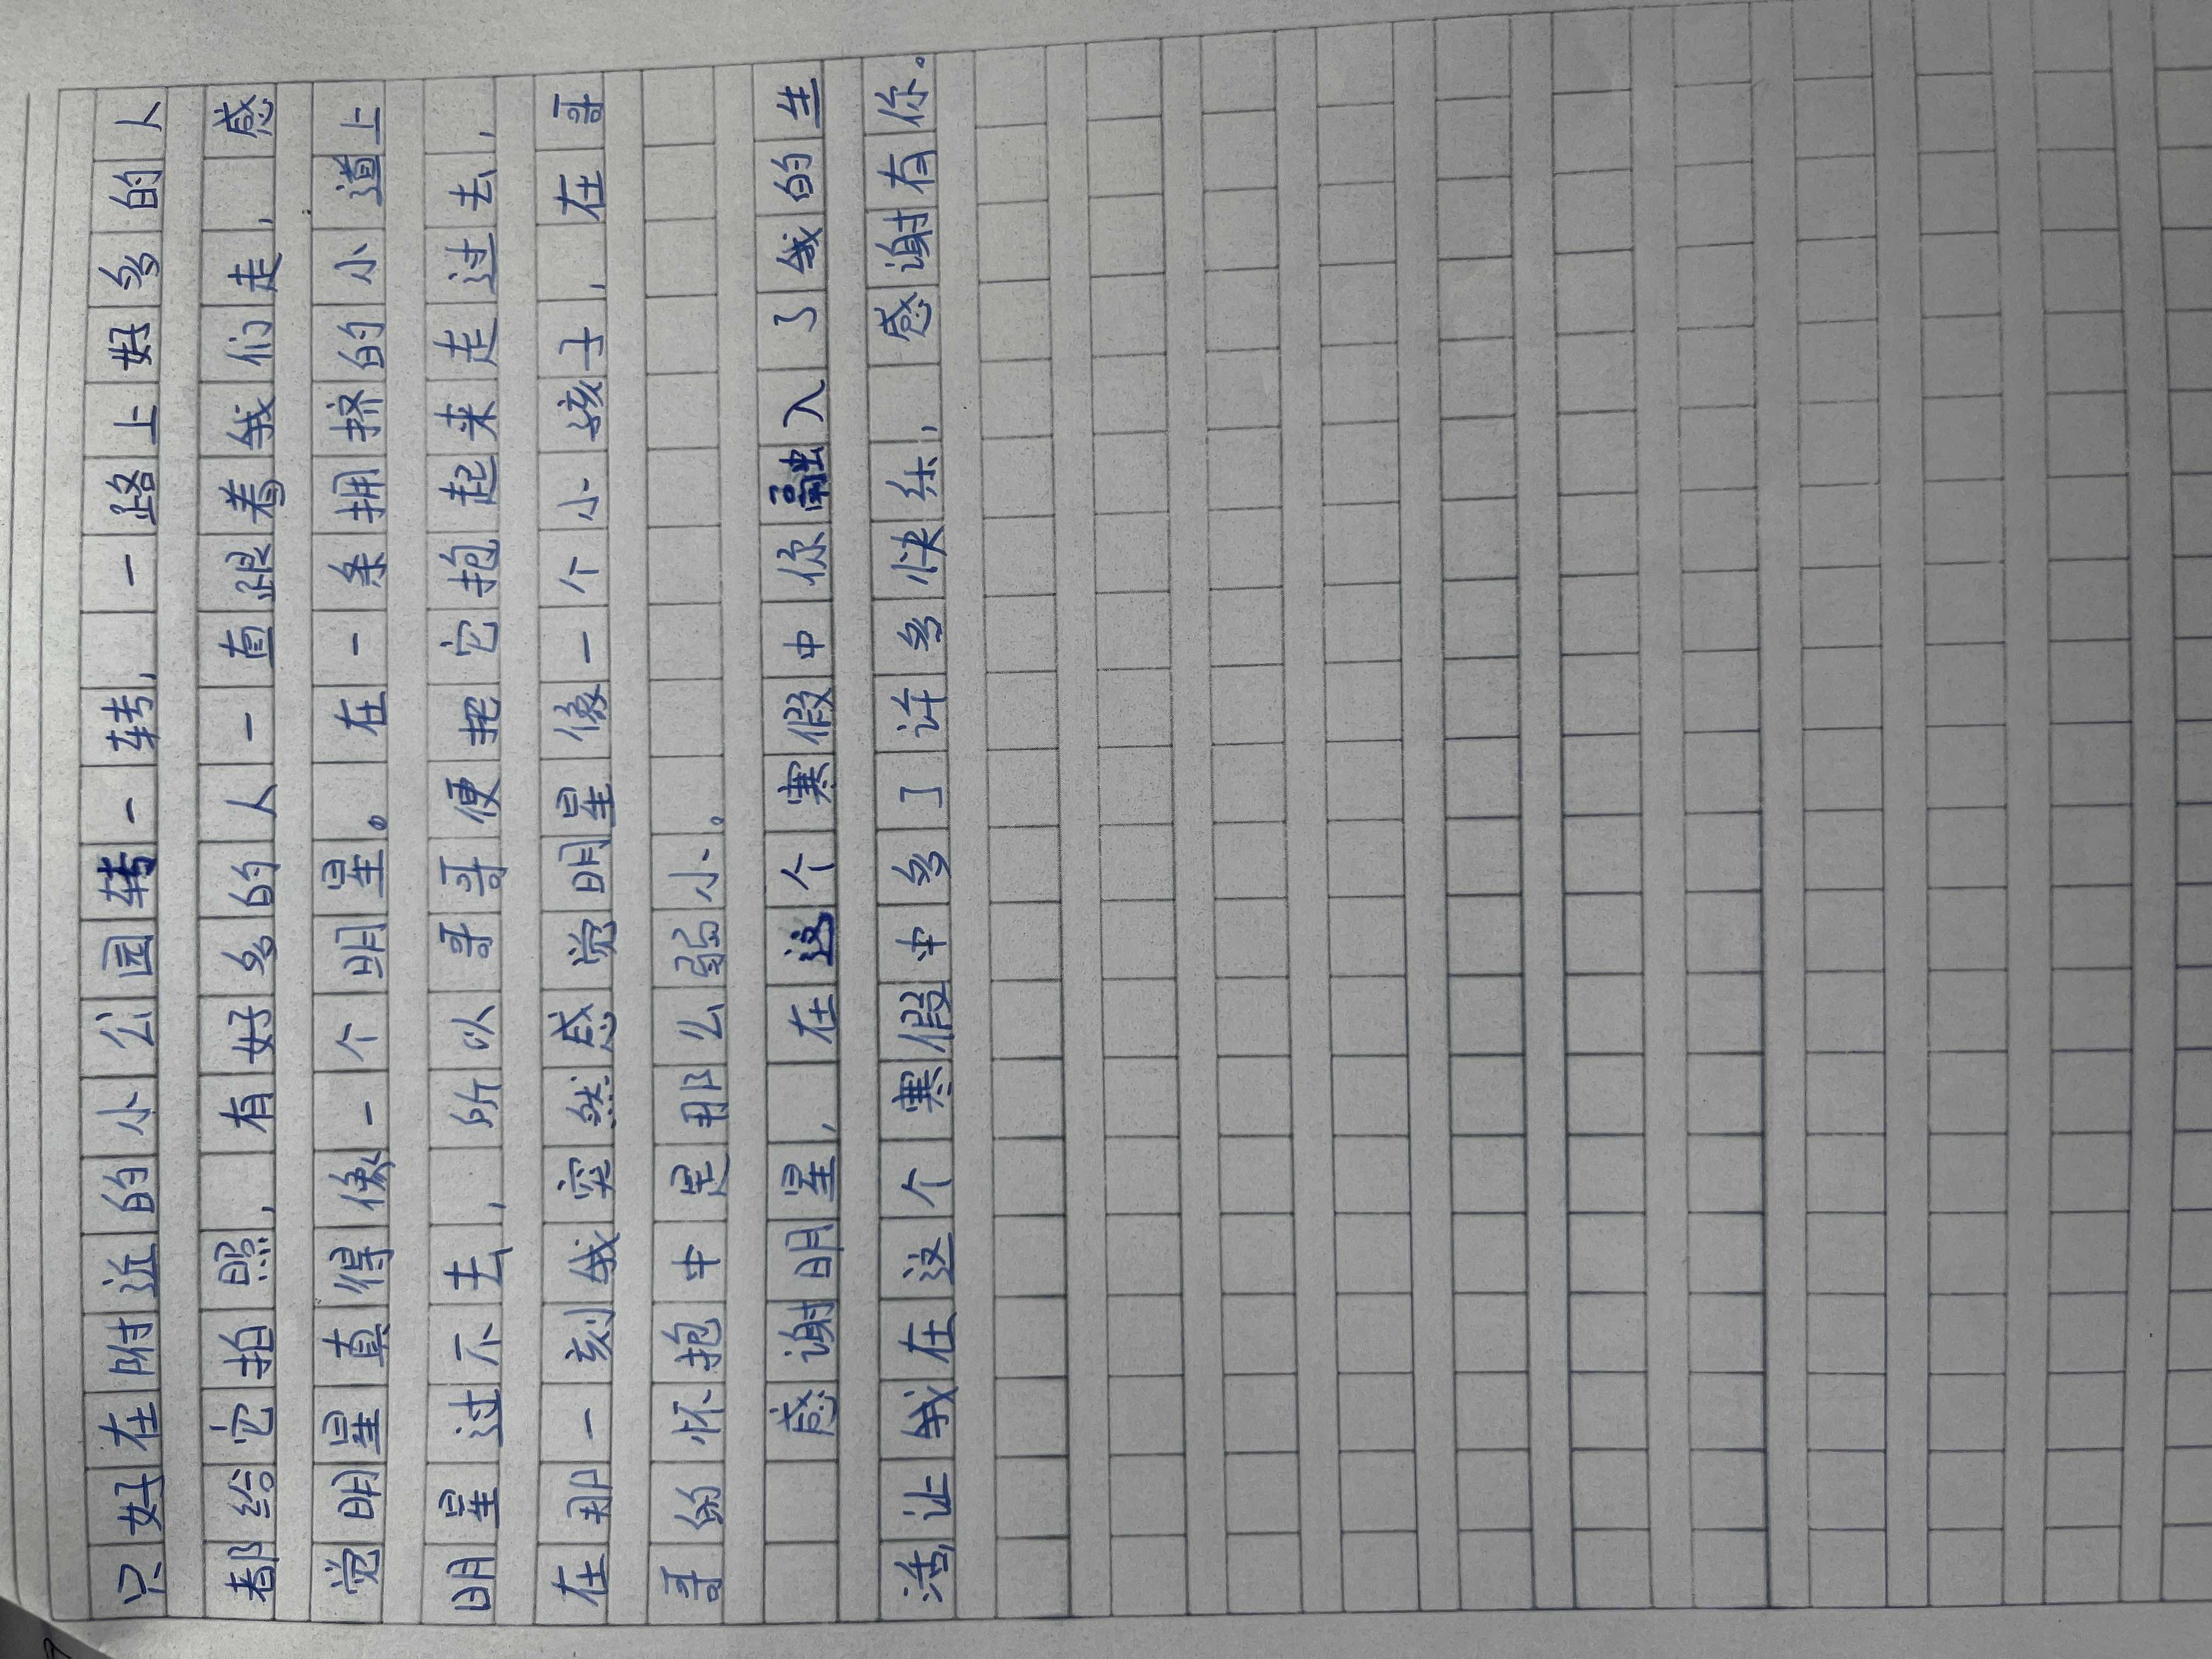 只好在附近的小公园转一转，一路上好多的人
都给它拍照，有好多的人一直跟着我们走，感
觉明星真得像一个明星。在一条拥挤的小道上
明星过不去，所以哥哥便把它抱起来走过去，
在那一刻我突然感觉明星像一个小孩子，在哥
哥的怀抱中是那么弱小。
感谢明星，在这个寒假中你融入了我的生
活，让我在这个寒假中多了许多快乐，感谢有你。